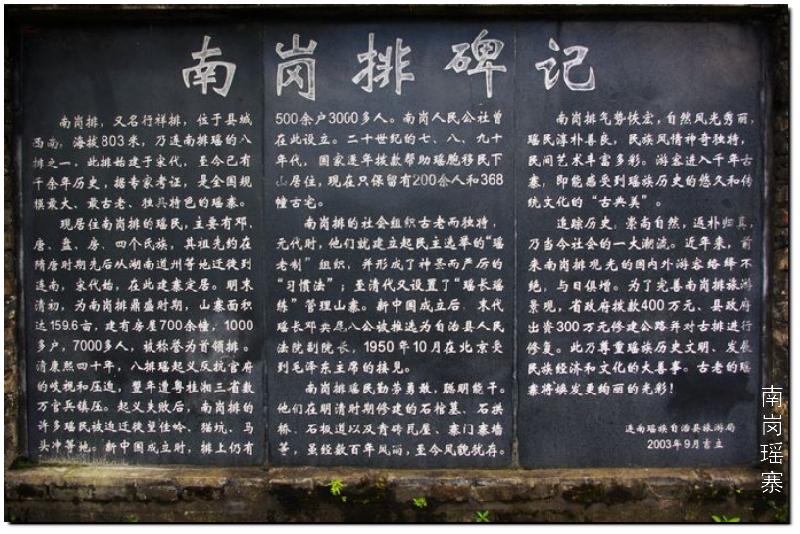 南岗排碑记
南岗排，又名行祥排，位于县城
西南，海拔803米，乃连南排瑶的八
排之一，此排始建于宋代，至今已有
千余年历史，据专家考证，是全国规
模最大、最古老、独具特色的瑶寨。
现居住南岗排的瑶民，主要有邓、
唐、盘、房、四个氏族，其祖先约在
隋唐时期先后从湖南道州等地迁徙到
连南，宋代始，在此建寨定居。明末
清初，为南岗排鼎盛时期，山寨面积
达159.6亩，建有房屋700余幢，1000
多户，7000多人，被称誉为首领排。
清康熙四十年，八排瑶起义反抗官府
的歧视和压迫，翌年遭粤桂湘三省数
万官兵镇压。起义失败后，南岗排的
许多瑶民被迫迁徙望佳岭、猫坑、马
头冲等地。新中国成立时，排上仍有
500余户3000多人。南岗人民公社曾
在此设立。二十世纪的七、八、九十
年代，国家逐年拨款帮助瑶胞移民下
山居住，现在只保留有200余人和368
幢古宅。
南岗排的社会组织古老而独特，
元代时，他们就建立起民主选举的“瑶
老制”组织，并形成了神圣而严厉的
“习惯法”；至清代又设置了“瑶长瑶
练”管理山寨。新中国成立后，末代
瑶长邓央尾八公被推选为自治县人民
法院副院长，1950年10月在北京受
到毛泽东主席的接见。
南岗排瑶民勤劳勇敢，聪明能干。
他们在明清时期修建的石棺墓、石拱
桥、石板道以及青砖瓦屋、寨门寨墙
等，虽经数百年风雨，至今风貌犹存。
南岗排气势恢宏，自然风光秀丽，
瑶民淳朴善良，民族风情神奇独特，
民间艺术丰富多彩。游客进入千年古
寨，即能感受到瑶族历史的悠久和传
统文化的“古典美”。
追踪历史，崇尚自然，返朴归真，
乃当今社会的一大潮流。近年来，前
来南岗排观光的国内外游客络绎不
绝，与日俱增。为了完善南岗排旅游
景观，省政府拨款400万元、县政府
出资300万元修建公路并对古排进行
修复。此乃尊重瑶族历史文明、发展
民族经济和文化的大善事。古老的瑶
寨将焕发更绚丽的光彩！
连南瑶族自治县旅游局
2003年9月吉立
南岗瑶寨